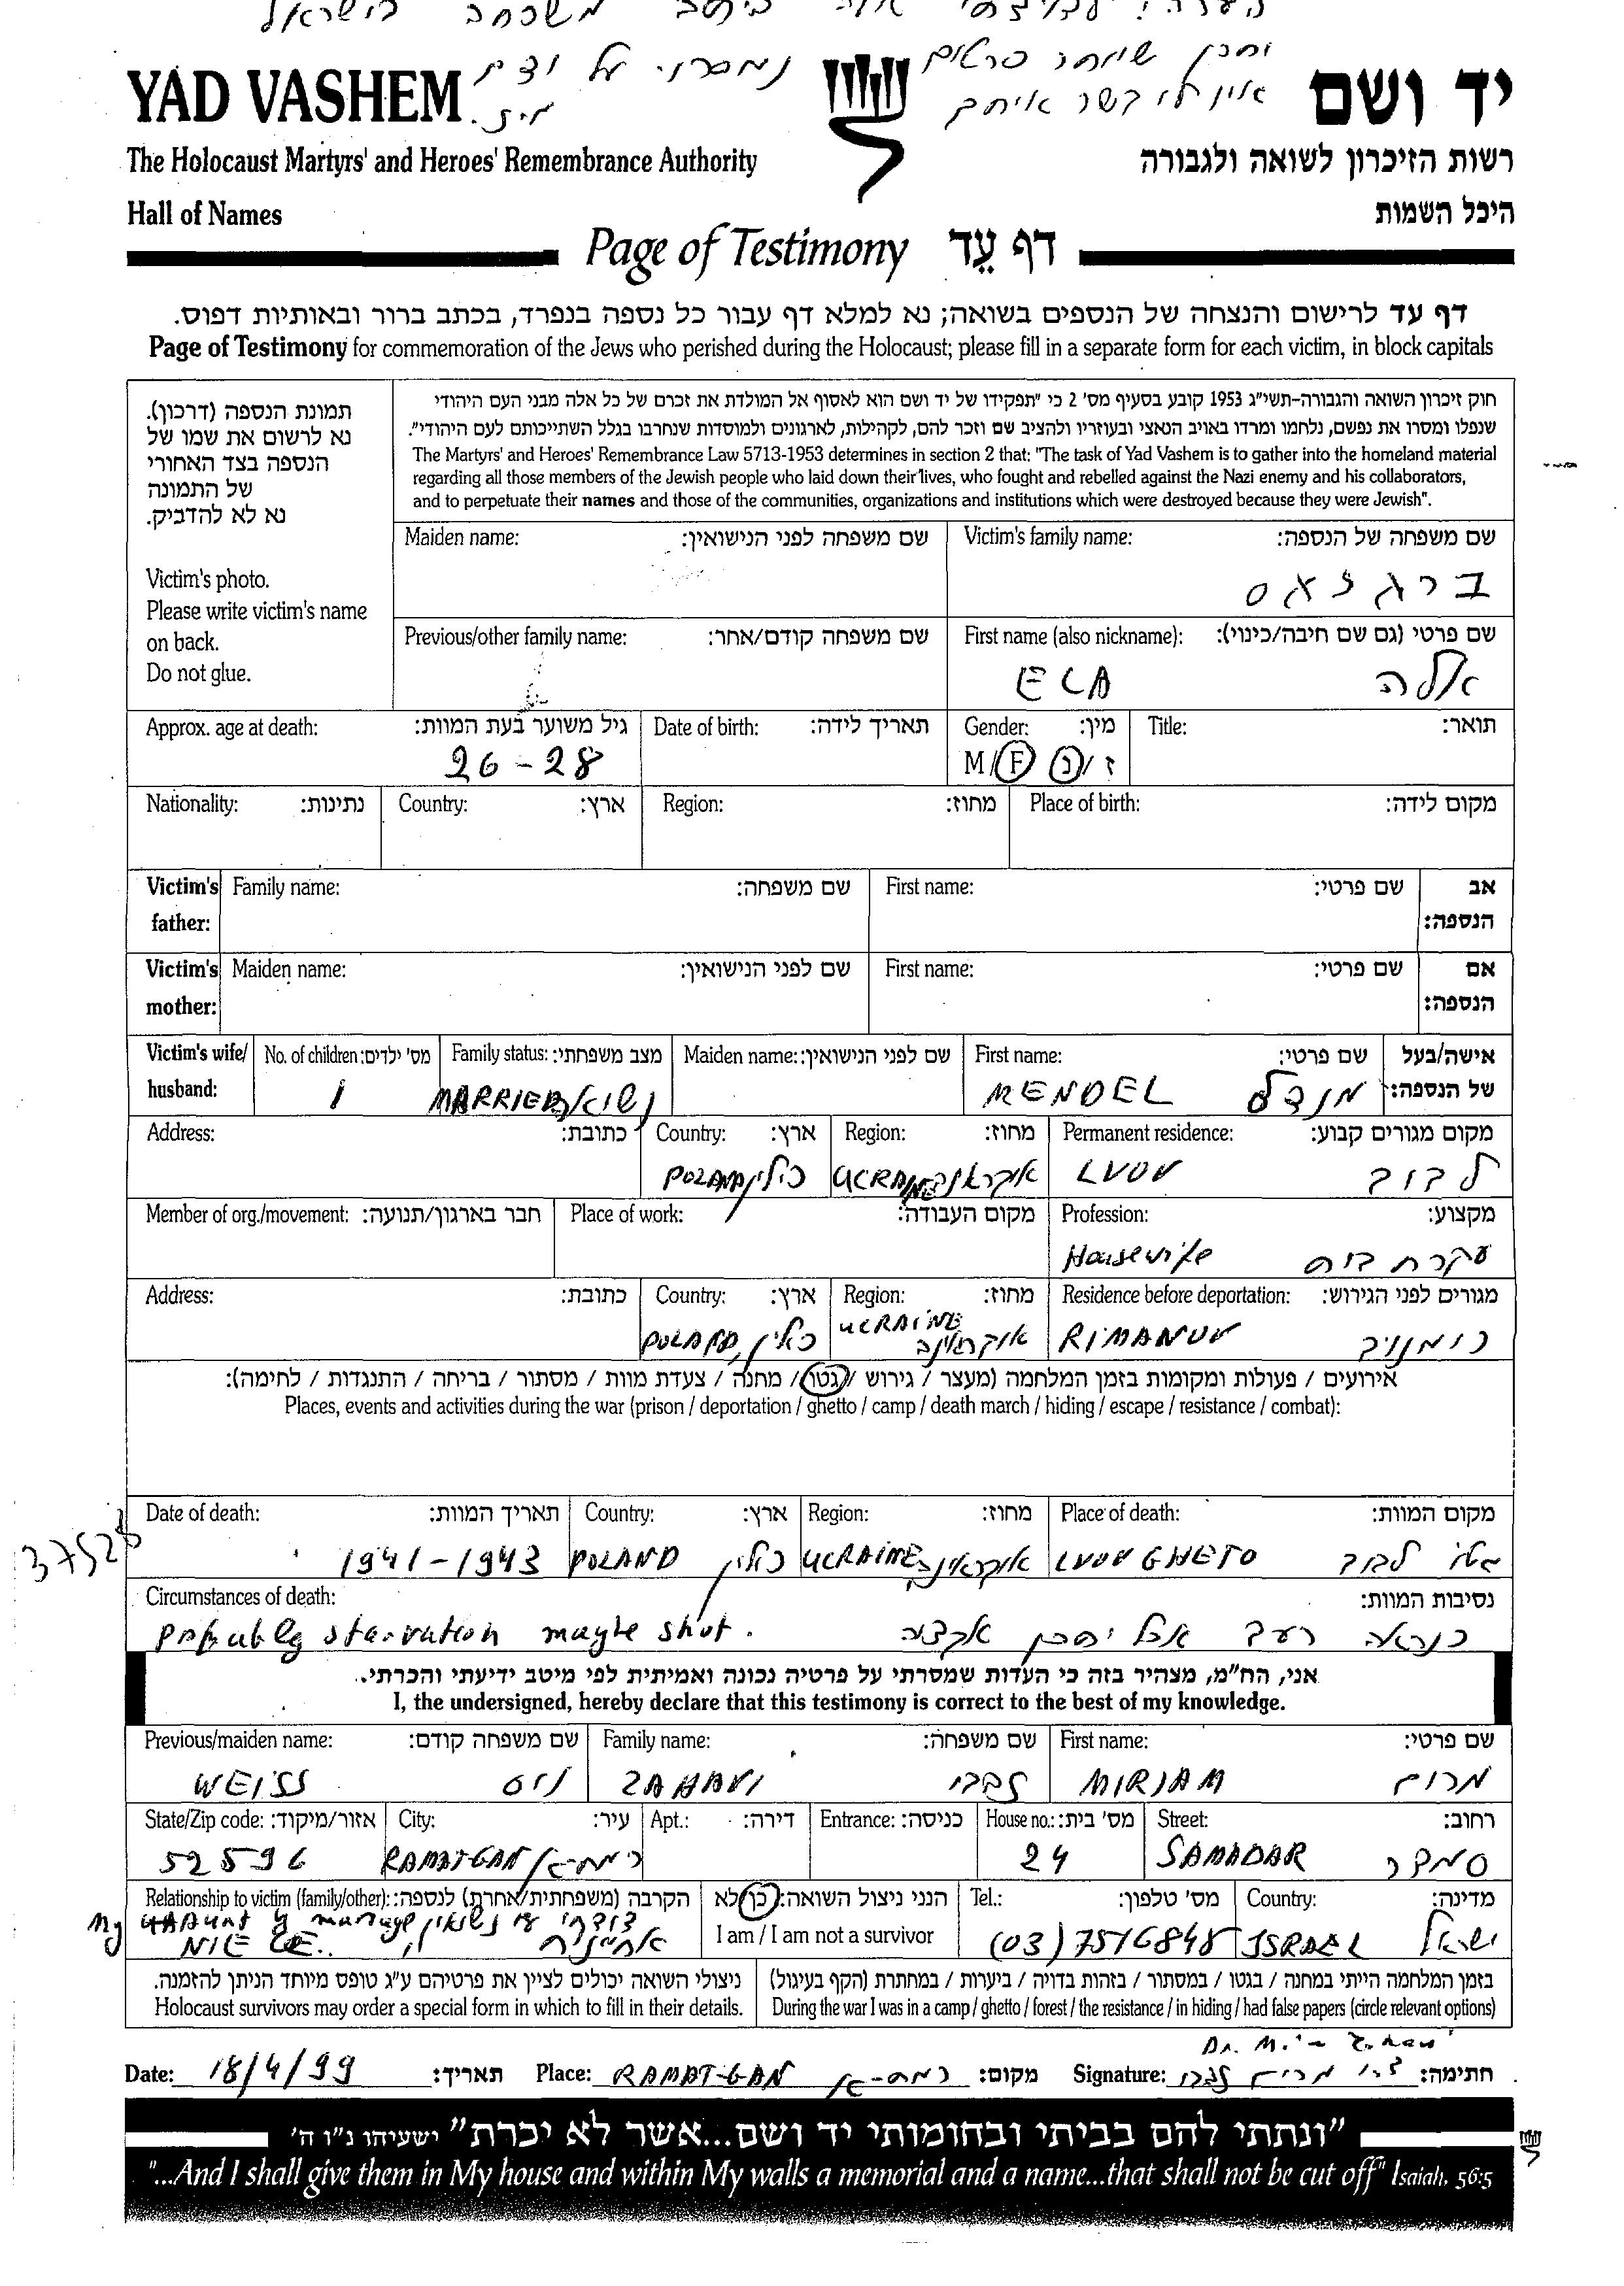 הערה: משפחה בישראל
יתכן שיותר פרטים
אין לי קשר איתם
YAD VASHEM יד ושם
The Holocaust Martyrs' and Heroes' Remembrance Authority רשות הזיכרון לשואה ולגבורה
Hall of Names היכל השמות
Page of Testimony דף עֵד
דף עד לרישום והנצחה של הנספים בשואה; נא למלא דף עבור כל נספה בנפרד, בכתב ברור ובאותיות דפוס.
Page of Testimony for commemoration of the Jews who perished during the Holocaust; please fill in a separate form for each victim, in block capitals
תמונת הנספה (דרכון).
נא לרשום את שמו של
הנספה בצד האחורי
של התמונה
נא לא להדביק.
Victim's photo.
Please write victim's name
on back.
Do not glue.
חוק זיכרון השואה והגבורה-תשי"ג 1953 קובע בסעיף מס' 2 כי "תפקידו של יד ושם הוא לאסוף אל המולדת את זכרם של כל אלה מבני העם היהודי
שנפלו ומסרו את נפשם, נלחמו ומרדו באויב הנאצי ובעוזריו ולהציב שם וזכר להם, לקהילות, לארגונים ולמוסדות שנחרבו בגלל השתייכותם לעם היהודי".
The Martyrs' and Heroes' Remembrance Law 5713-1953 determines in section 2 that: "The task of Yad Vashem is to gather into the homeland material
regarding all those members of the Jewish people who laid down their lives, who fought and rebelled against the Nazi enemy and his collaborators,
and to perpetuate their names and those of the communities, organizations and institutions which were destroyed because they were Jewish".
Maiden name: שם משפחה לפני הנישואין: Victim's family name: שם משפחה של הנספה:
ברגזאס
Previous/other family name: שם משפחה קודם/אחר: First name (also nickname): שם פרטי (גם שם חיבה/כינוי):
ELA אלה
Approx. age at death: גיל משוער בעת המוות: Date of birth: תאריך לידה: Gender: מין: Title: תואר:
26-28 M/F ז/נ
Nationality: נתינות: Country: ארץ: Region: מחוז: Place of birth: מקום לידה:
Victim's father: Family name: שם משפחה: First name: שם פרטי: אב הנספה:
Victim's mother: Maiden name: שם לפני הנישואין: First name: שם פרטי: אם הנספה:
Victim's wife/husband: No. of children: מס' ילדים: Family status: מצב משפחתי: Maiden name: שם לפני הנישואין: First name: שם פרטי: אישה/בעל של הנספה:
1 MARRIED/נשוא MENDEL מנדל
Address: כתובת: Country: ארץ: Region: מחוז: Permanent residence: מקום מגורים קבוע:
POLAND פולין UCRAINE אוקראינה LVOV לבוב
Member of org./movement: חבר בארגון/תנועה: Place of work: מקום העבודה: Profession: מקצוע:
Housewife עקרת בית
Address: כתובת: Country: ארץ: Region: מחוז: Residence before deportation: מגורים לפני הגירוש:
POLAND, פולין UCRAINE אוקראינה RIMANUV רימנוב
אירועים / פעולות ומקומות בזמן המלחמה (מעצר / גירוש / גטו / מחנה / צעדת מוות / מסתור / בריחה / התנגדות / לחימה):
Places, events and activities during the war (prison / deportation / ghetto / camp / death march / hiding / escape / resistance / combat):
Date of death: תאריך המוות: Country: ארץ: Region: מחוז: Place of death: מקום המוות:
37528
1941-1943 POLAND פולין UCRAINE אוקראינה LVOV GHETO גטו לבוב
Circumstances of death: נסיבות המוות:
probably starvation maybe shot. כנראה רעב אבל יתכן אקציה
אני, הח"מ, מצהיר בזה כי העדות שמסרתי על פרטיה נכונה ואמיתית לפי מיטב ידיעתי והכרתי.
I, the undersigned, hereby declare that this testimony is correct to the best of my knowledge.
Previous/maiden name: שם משפחה קודם: Family name: שם משפחה: First name: שם פרטי:
WEISS וייס ZAHAVI זהבי MIRJAM מרים
State/Zip code: אזור/מיקוד: City: עיר: Apt.: דירה: Entrance: כניסה: House no.: מס' בית: Street: רחוב:
52596 RAMAT-GAN/רמת-גן 24 SAMADAR סמדר
Relationship to victim (family/other): הקרבה (משפחתית/אחרת) לנספה: הנני ניצול השואה: כן/לא Tel.: מס' טלפון: Country: מדינה:
My Aunt by marriage דודתי ע"י נשואין
NIECE.. אחיינית
I am / I am not a survivor
(03)7516848 ISRAEL ישראל
ניצולי השואה יכולים לציין את פרטיהם ע"ג טופס מיוחד הניתן להזמנה. בזמן המלחמה הייתי במחנה / בגטו / במסתור / בזהות בדויה / ביערות / במחתרת (הקף בעיגול)
Holocaust survivors may order a special form in which to fill in their details. During the war I was in a camp / ghetto / forest / the resistance / in hiding / had false papers (circle relevant options)
Date: 18/4/99 תאריך: Place: RAMAT-GAN רמת-גן מקום: Signature: ד"ר מרים זהבי חתימה:
"ונתתי להם בביתי ובחומותי יד ושם...אשר לא יכרת" ישעיהו נ"ו ה'
"...And I shall give them in My house and within My walls a memorial and a name...that shall not be cut off" Isaiah, 56:5